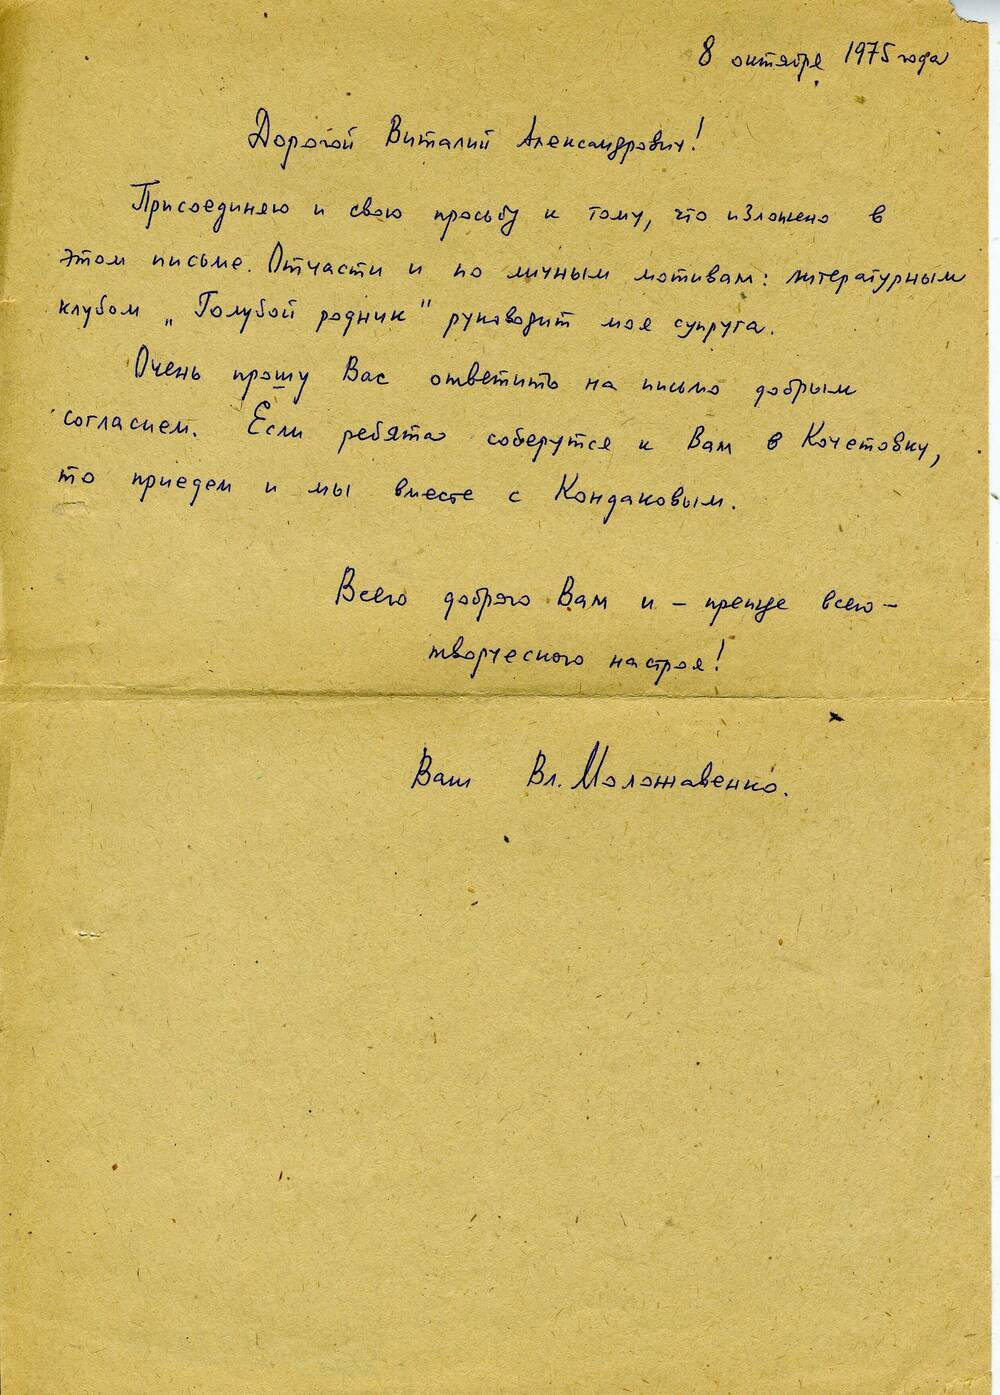 8 октября 1975 года
Дорогой Виталий Александрович!
Присоединяю и свою просьбу к тому, что изложено в
этом письме. Отчасти и по личным мотивам: литературным
клубом „Голубой родник" руководит моя супруга.
Очень прошу Вас ответить на письмо добрым
согласием. Если ребята соберутся к Вам в Кочетовку,
то приедем и мы вместе с Кондаковым.
Всего доброго Вам и – прежде всего –
творческого настроя!
Ваш Вл. Моложавенко.